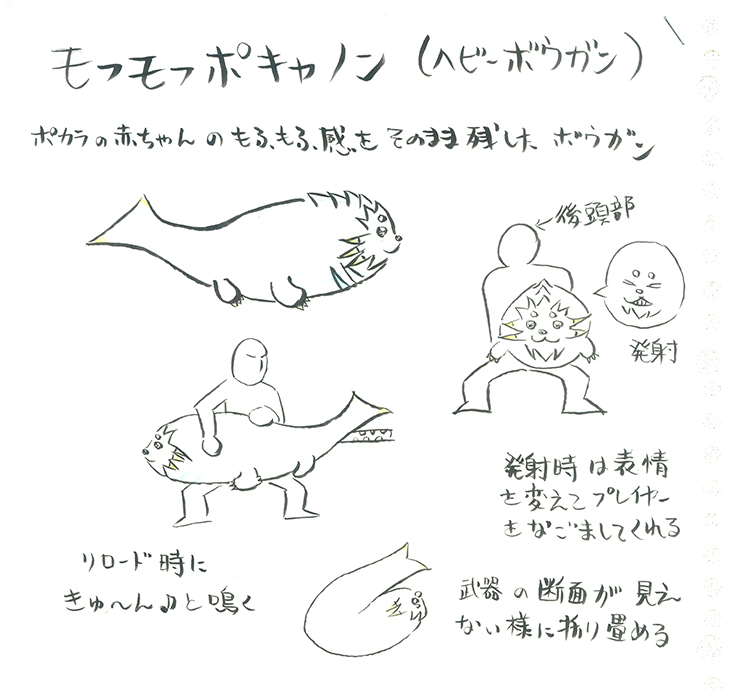 モフモフポキャノン（ヘビーボウガン）
ポカラの赤ちゃんのもふもふ感をそのまま残したボウガン
←後頭部
発射
発射時は表情
を変えてプレイヤー
をなごましてくれる
リロード時に
きゅ〜ん♪と鳴く
武器の断面が見え
ない様に折り畳める